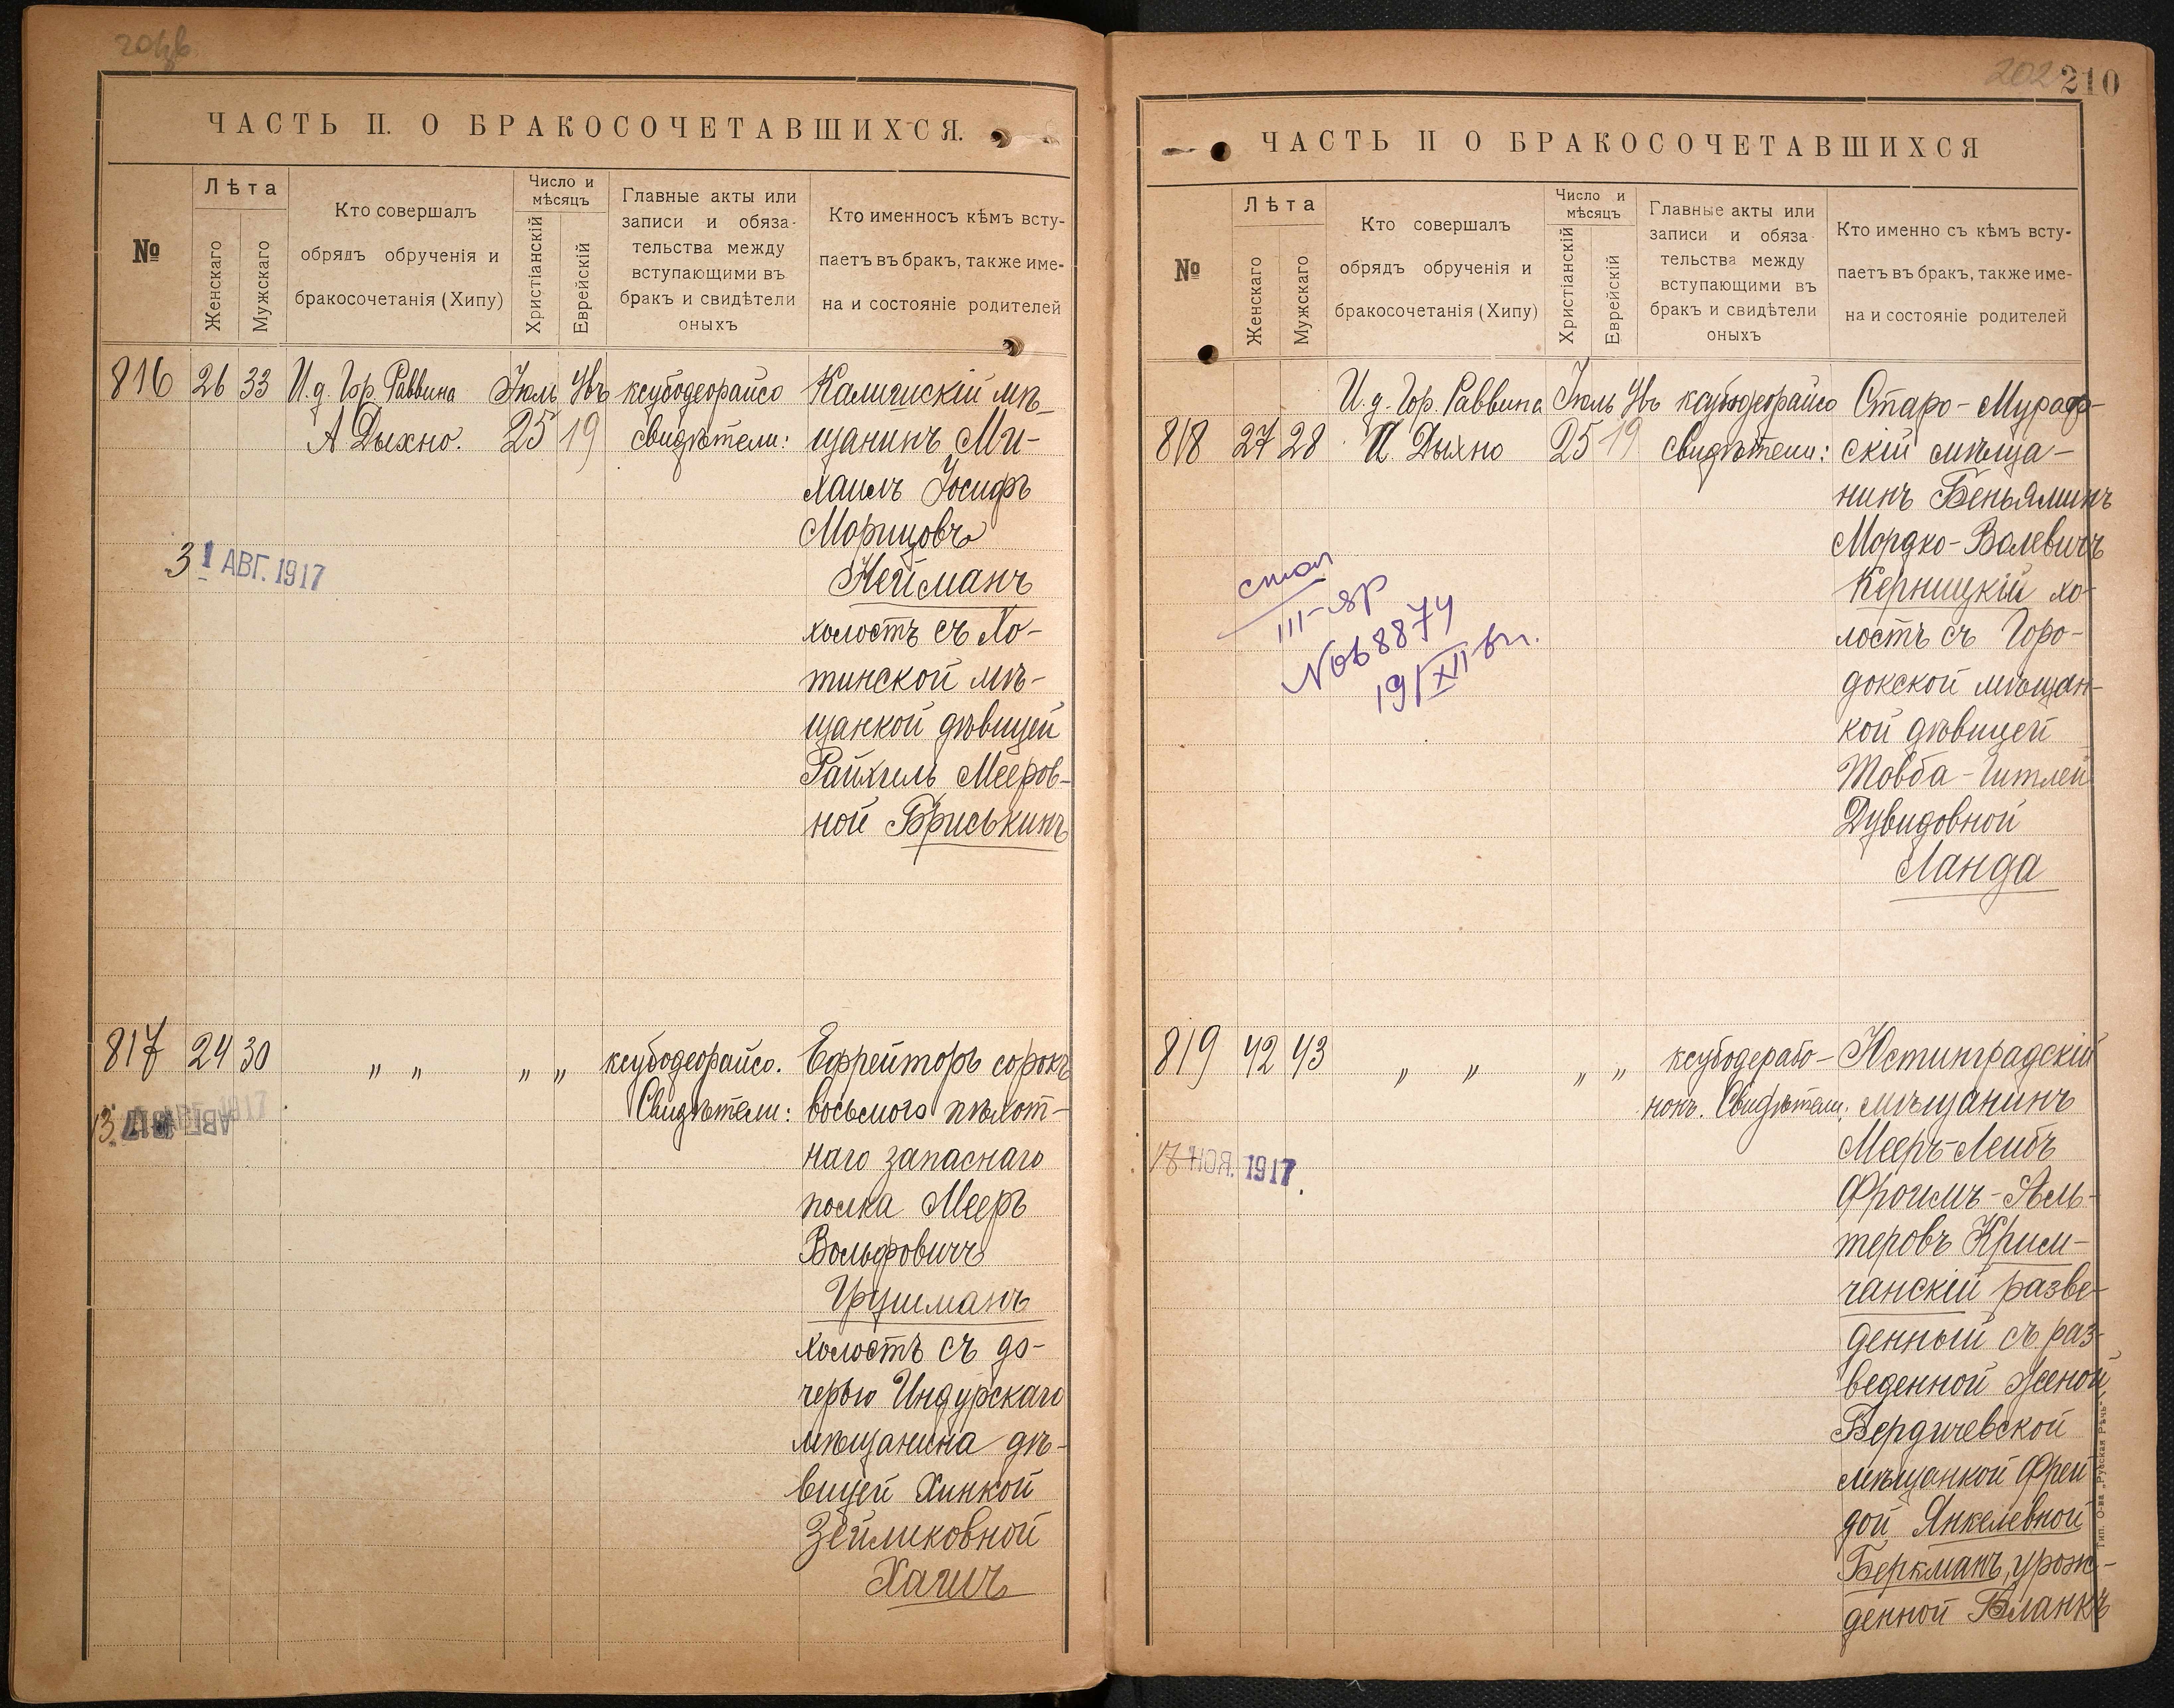 ЧАСТЬ II. О БРАКОСОЧЕТАВШИХСЯ.
№
Лѣта
Женскаго
Мужскаго
Кто совершалъ
обрядъ обрученія и
бракосочетанія (Хипу)
Число и
мѣсяцъ
Христіанскій
Еврейскій
Главные акты или
записи и обяза-
тельства между
вступающими въ
бракъ и свидѣтели
оныхъ
Кто именно съ кѣмъ всту-
паетъ въ бракъ, также име-
на и состояніе родителей
816 26 33 И.д. Гор. Раввина Іюль Увъ ксубодеорайсо
А Дыхно. 25 19 свидѣтели:
Калишскій мѣ-
щанинъ Ми-
хаилъ Іосифъ
Морицовъ
Нейманъ
холостъ съ Хо-
тинской мѣ-
щанкой дѣвицей
Райхиль Мееров-
ной Бриськинъ
31 АВГ. 1917
817 24 30 „ „ „ „ ксубодеорайсо.
Свидѣтели:
Ефрейторъ сорокъ
восьмого пѣхот-
наго запаснаго
полка Мееръ
Вольфовичъ
Грушманъ
холостъ съ до-
черью Индурскаго
мѣщанина дѣ-
вицей Хинкой
Зейликовной
Хагитъ
202 210
ЧАСТЬ II О БРАКОСОЧЕТАВШИХСЯ
№
Лѣта
Женскаго
Мужскаго
Кто совершалъ
обрядъ обрученія и
бракосочетанія (Хипу)
Число и
мѣсяцъ
Христіанскій
Еврейскій
Главные акты или
записи и обяза-
тельства между
вступающими въ
бракъ и свидѣтели
оныхъ
Кто именно съ кѣмъ всту-
паетъ въ бракъ, также име-
на и состояніе родителей
И.д. Гор. Раввина Іюль Увъ ксубодеорайсо
818 27 28 А. Дыхно 25 19 свидѣтели:
Старо-Мураф-
скій мѣща-
нинъ Беньяминъ
Мордко-Волевичъ
Керницкій хо-
лостъ съ Горо-
докской мѣщан-
кой дѣвицей
Товба-Гитлей
Дувидовной
Ланда
стол
III-яр
№ 68874
19/XII
819 42 43 „ „ „ „ ксубодерабо-
нонъ. Свидѣтели:
Юстинградскій
мѣщанинъ
Мееръ-Лейбъ
Фроимъ-Аль-
теровъ Крим-
чанскій разве-
денный съ раз-
веденной женой
Бердичевской
мѣщанкой Фрей
дой Янкелевной
Беркманъ, урож-
денной Бланкъ
17 НОЯ. 1917.
Тип. О-ва „Русская Рѣчь“